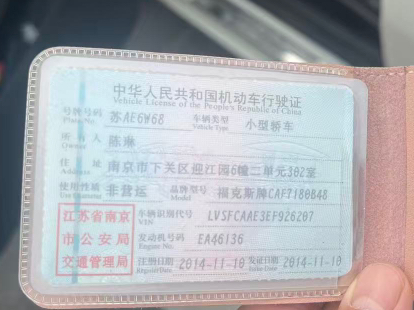 中华人民共和国机动车行驶证
Vehicle License of the People's Republic of China
号牌号码 苏AE6W68 车辆类型 小型轿车
Plate No. Vehicle Type
所有人 陈琳
Owner
住址 南京市下关区迎江园6幢二单元302室
Address
使用性质 非营运 品牌型号 福克斯牌CAF7180B48
Use Character Model
江苏省南京
市公安局
交通管理局
车辆识别代号 LVSFCAAE3EF928207
VIN
发动机号码 EA46136
Engine No.
注册日期 2014-11-10 发证日期 2014-11-10
Register Date Issue Date